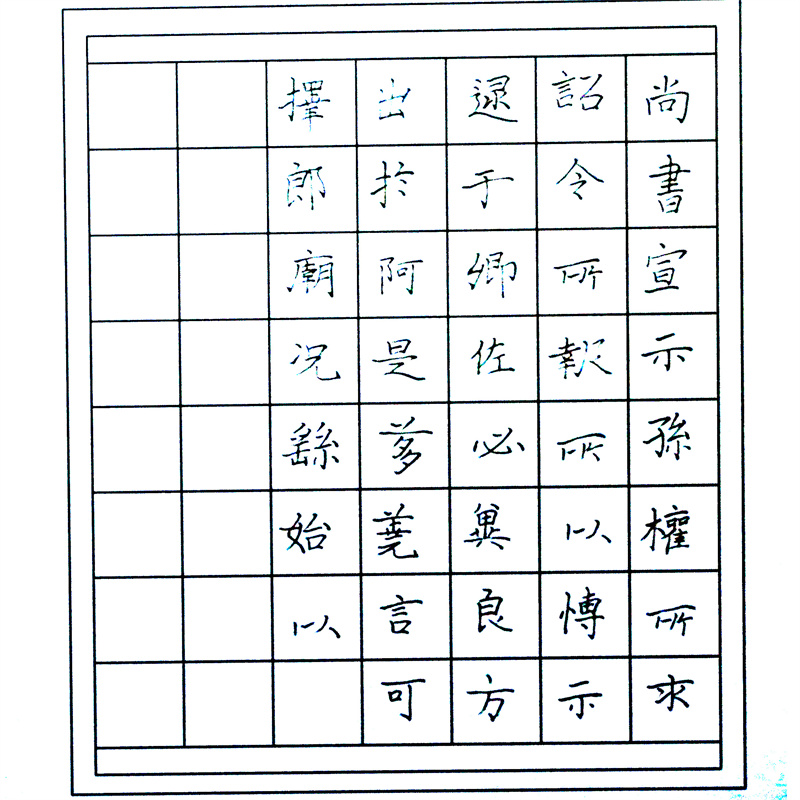 尚書宣示孫權所求
詔令所報所以愽示
逮于卿佐必冀良方
出於阿是芻蕘言可
擇郎廟況繇始以